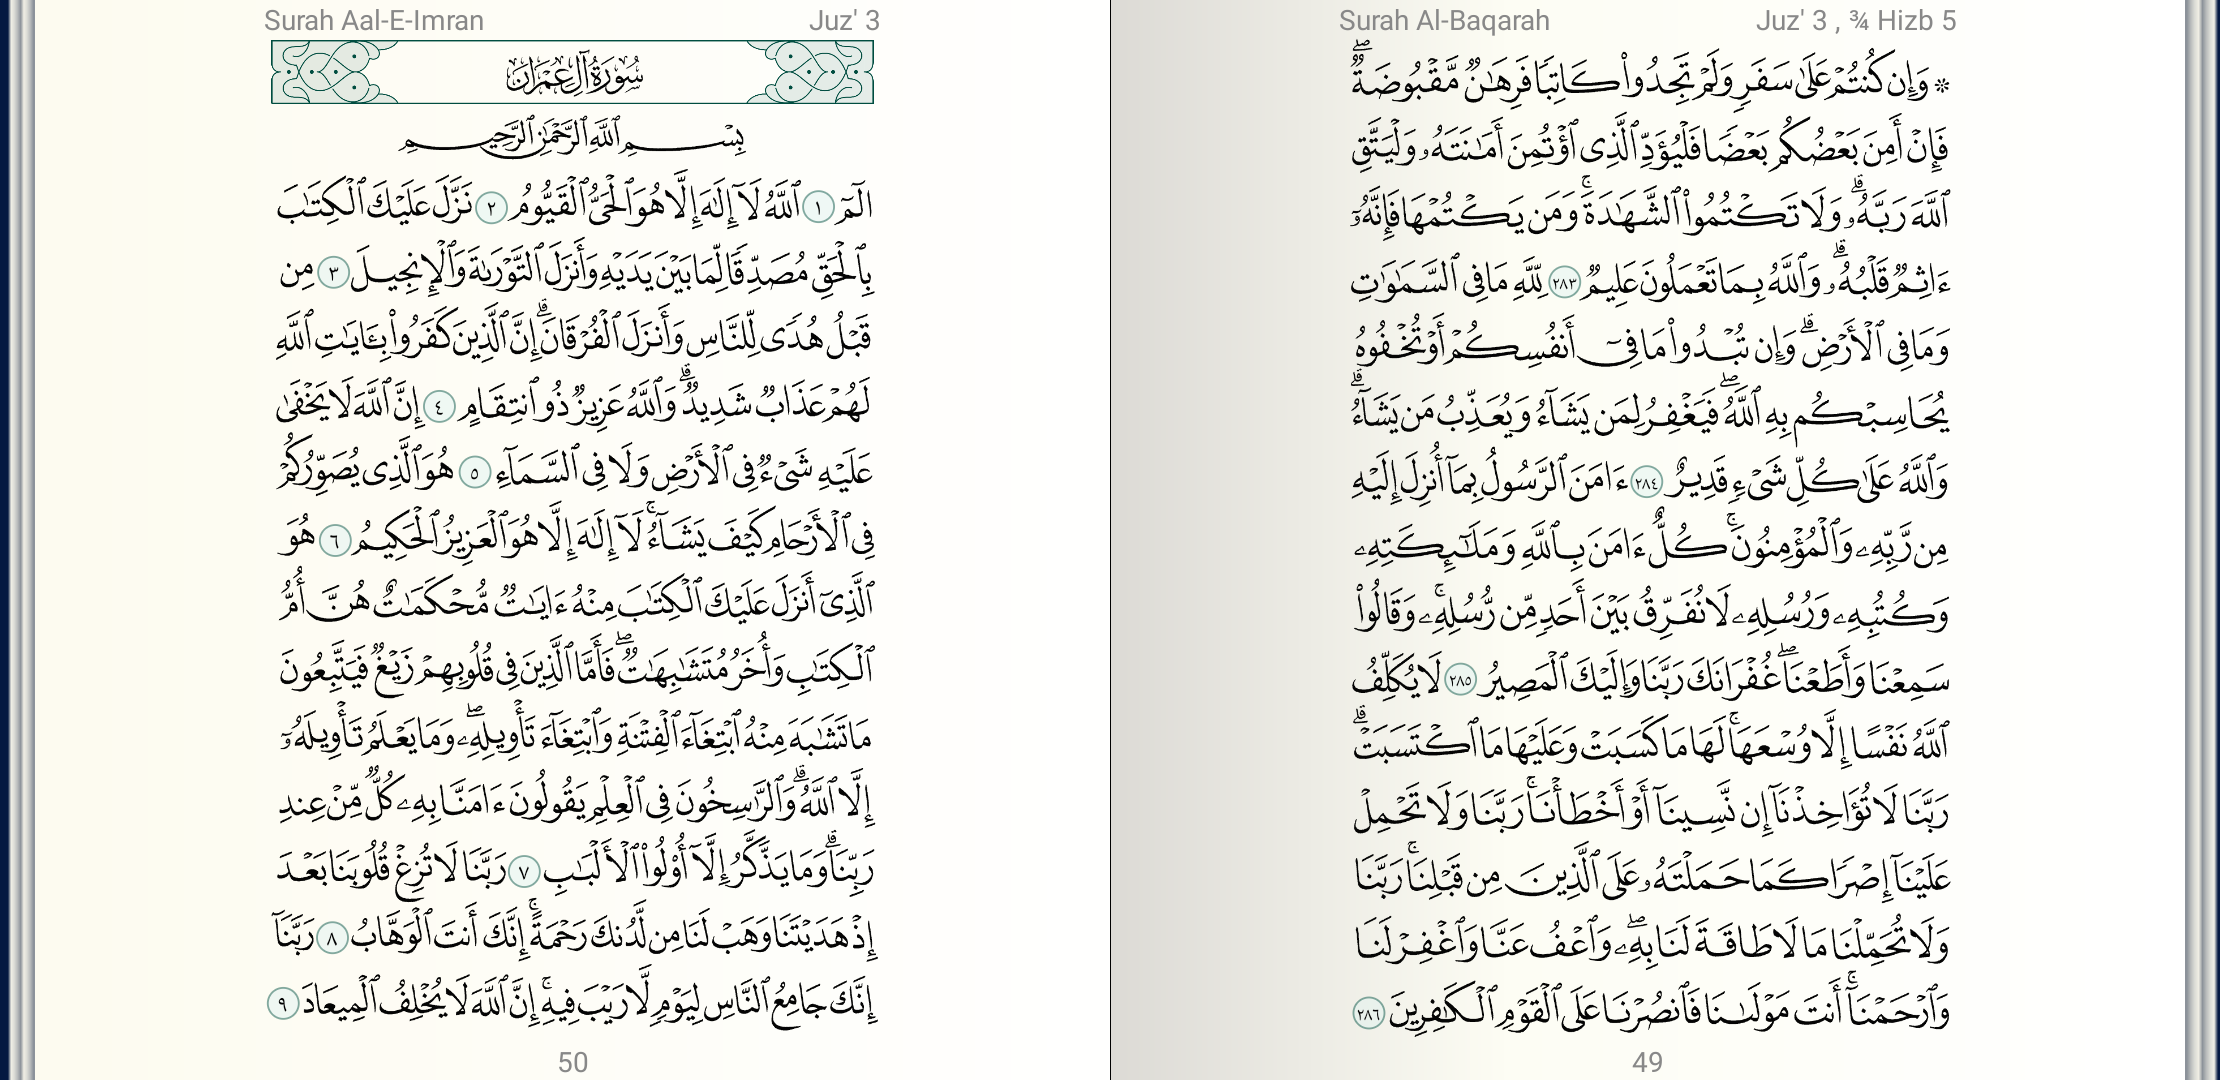 Surah Al-Baqarah Juz' 3 , ¾ Hizb 5
۞ وَإِن كُنتُمْ عَلَىٰ سَفَرٍ وَلَمْ تَجِدُوا۟ كَاتِبًا فَرِهَـٰنٌ مَّقْبُوضَةٌ ۖ
فَإِنْ أَمِنَ بَعْضُكُم بَعْضًا فَلْيُؤَدِّ ٱلَّذِى ٱؤْتُمِنَ أَمَـٰنَتَهُۥ وَلْيَتَّقِ
ٱللَّهَ رَبَّهُۥ ۗ وَلَا تَكْتُمُوا۟ ٱلشَّهَـٰدَةَ ۚ وَمَن يَكْتُمْهَا فَإِنَّهُۥٓ
ءَاثِمٌ قَلْبُهُۥ ۗ وَٱللَّهُ بِمَا تَعْمَلُونَ عَلِيمٌ ٢٨٣ لِّلَّهِ مَا فِى ٱلسَّمَـٰوَٰتِ
وَمَا فِى ٱلْأَرْضِ ۗ وَإِن تُبْدُوا۟ مَا فِىٓ أَنفُسِكُمْ أَوْ تُخْفُوهُ
يُحَاسِبْكُم بِهِ ٱللَّهُ ۖ فَيَغْفِرُ لِمَن يَشَآءُ وَيُعَذِّبُ مَن يَشَآءُ ۗ
وَٱللَّهُ عَلَىٰ كُلِّ شَىْءٍ قَدِيرٌ ٢٨٤ ءَامَنَ ٱلرَّسُولُ بِمَآ أُنزِلَ إِلَيْهِ
مِن رَّبِّهِۦ وَٱلْمُؤْمِنُونَ ۚ كُلٌّ ءَامَنَ بِٱللَّهِ وَمَلَـٰٓئِكَتِهِۦ
وَكُتُبِهِۦ وَرُسُلِهِۦ لَا نُفَرِّقُ بَيْنَ أَحَدٍ مِّن رُّسُلِهِۦ ۚ وَقَالُوا۟
سَمِعْنَا وَأَطَعْنَا ۖ غُفْرَانَكَ رَبَّنَا وَإِلَيْكَ ٱلْمَصِيرُ ٢٨٥ لَا يُكَلِّفُ
ٱللَّهُ نَفْسًا إِلَّا وُسْعَهَا ۚ لَهَا مَا كَسَبَتْ وَعَلَيْهَا مَا ٱكْتَسَبَتْ ۗ
رَبَّنَا لَا تُؤَاخِذْنَآ إِن نَّسِينَآ أَوْ أَخْطَأْنَا ۚ رَبَّنَا وَلَا تَحْمِلْ
عَلَيْنَآ إِصْرًا كَمَا حَمَلْتَهُۥ عَلَى ٱلَّذِينَ مِن قَبْلِنَا ۚ رَبَّنَا
وَلَا تُحَمِّلْنَا مَا لَا طَاقَةَ لَنَا بِهِۦ ۖ وَٱعْفُ عَنَّا وَٱغْفِرْ لَنَا
وَٱرْحَمْنَآ ۚ أَنتَ مَوْلَىٰنَا فَٱنصُرْنَا عَلَى ٱلْقَوْمِ ٱلْكَـٰفِرِينَ ٢٨٦
49
Surah Aal-E-Imran Juz' 3
سُورَةُ آلِ عِمْرَانَ
بِسْمِ ٱللَّهِ ٱلرَّحْمَـٰنِ ٱلرَّحِيمِ
الٓمٓ ١ ٱللَّهُ لَآ إِلَـٰهَ إِلَّا هُوَ ٱلْحَىُّ ٱلْقَيُّومُ ٢ نَزَّلَ عَلَيْكَ ٱلْكِتَـٰبَ
بِٱلْحَقِّ مُصَدِّقًا لِّمَا بَيْنَ يَدَيْهِ وَأَنزَلَ ٱلتَّوْرَىٰةَ وَٱلْإِنجِيلَ ٣ مِن
قَبْلُ هُدًى لِّلنَّاسِ وَأَنزَلَ ٱلْفُرْقَانَ ۗ إِنَّ ٱلَّذِينَ كَفَرُوا۟ بِـَٔايَـٰتِ ٱللَّهِ
لَهُمْ عَذَابٌ شَدِيدٌ ۗ وَٱللَّهُ عَزِيزٌ ذُو ٱنتِقَامٍ ٤ إِنَّ ٱللَّهَ لَا يَخْفَىٰ
عَلَيْهِ شَىْءٌ فِى ٱلْأَرْضِ وَلَا فِى ٱلسَّمَآءِ ٥ هُوَ ٱلَّذِى يُصَوِّرُكُمْ
فِى ٱلْأَرْحَامِ كَيْفَ يَشَآءُ ۚ لَآ إِلَـٰهَ إِلَّا هُوَ ٱلْعَزِيزُ ٱلْحَكِيمُ ٦ هُوَ
ٱلَّذِىٓ أَنزَلَ عَلَيْكَ ٱلْكِتَـٰبَ مِنْهُ ءَايَـٰتٌ مُّحْكَمَـٰتٌ هُنَّ أُمُّ
ٱلْكِتَـٰبِ وَأُخَرُ مُتَشَـٰبِهَـٰتٌ ۖ فَأَمَّا ٱلَّذِينَ فِى قُلُوبِهِمْ زَيْغٌ فَيَتَّبِعُونَ
مَا تَشَـٰبَهَ مِنْهُ ٱبْتِغَآءَ ٱلْفِتْنَةِ وَٱبْتِغَآءَ تَأْوِيلِهِۦ ۖ وَمَا يَعْلَمُ تَأْوِيلَهُۥٓ
إِلَّا ٱللَّهُ ۗ وَٱلرَّٰسِخُونَ فِى ٱلْعِلْمِ يَقُولُونَ ءَامَنَّا بِهِۦ كُلٌّ مِّنْ عِندِ
رَبِّنَا ۗ وَمَا يَذَّكَّرُ إِلَّآ أُو۟لُوا۟ ٱلْأَلْبَـٰبِ ٧ رَبَّنَا لَا تُزِغْ قُلُوبَنَا بَعْدَ
إِذْ هَدَيْتَنَا وَهَبْ لَنَا مِن لَّدُنكَ رَحْمَةً ۚ إِنَّكَ أَنتَ ٱلْوَهَّابُ ٨ رَبَّنَآ
إِنَّكَ جَامِعُ ٱلنَّاسِ لِيَوْمٍ لَّا رَيْبَ فِيهِ ۚ إِنَّ ٱللَّهَ لَا يُخْلِفُ ٱلْمِيعَادَ ٩
50